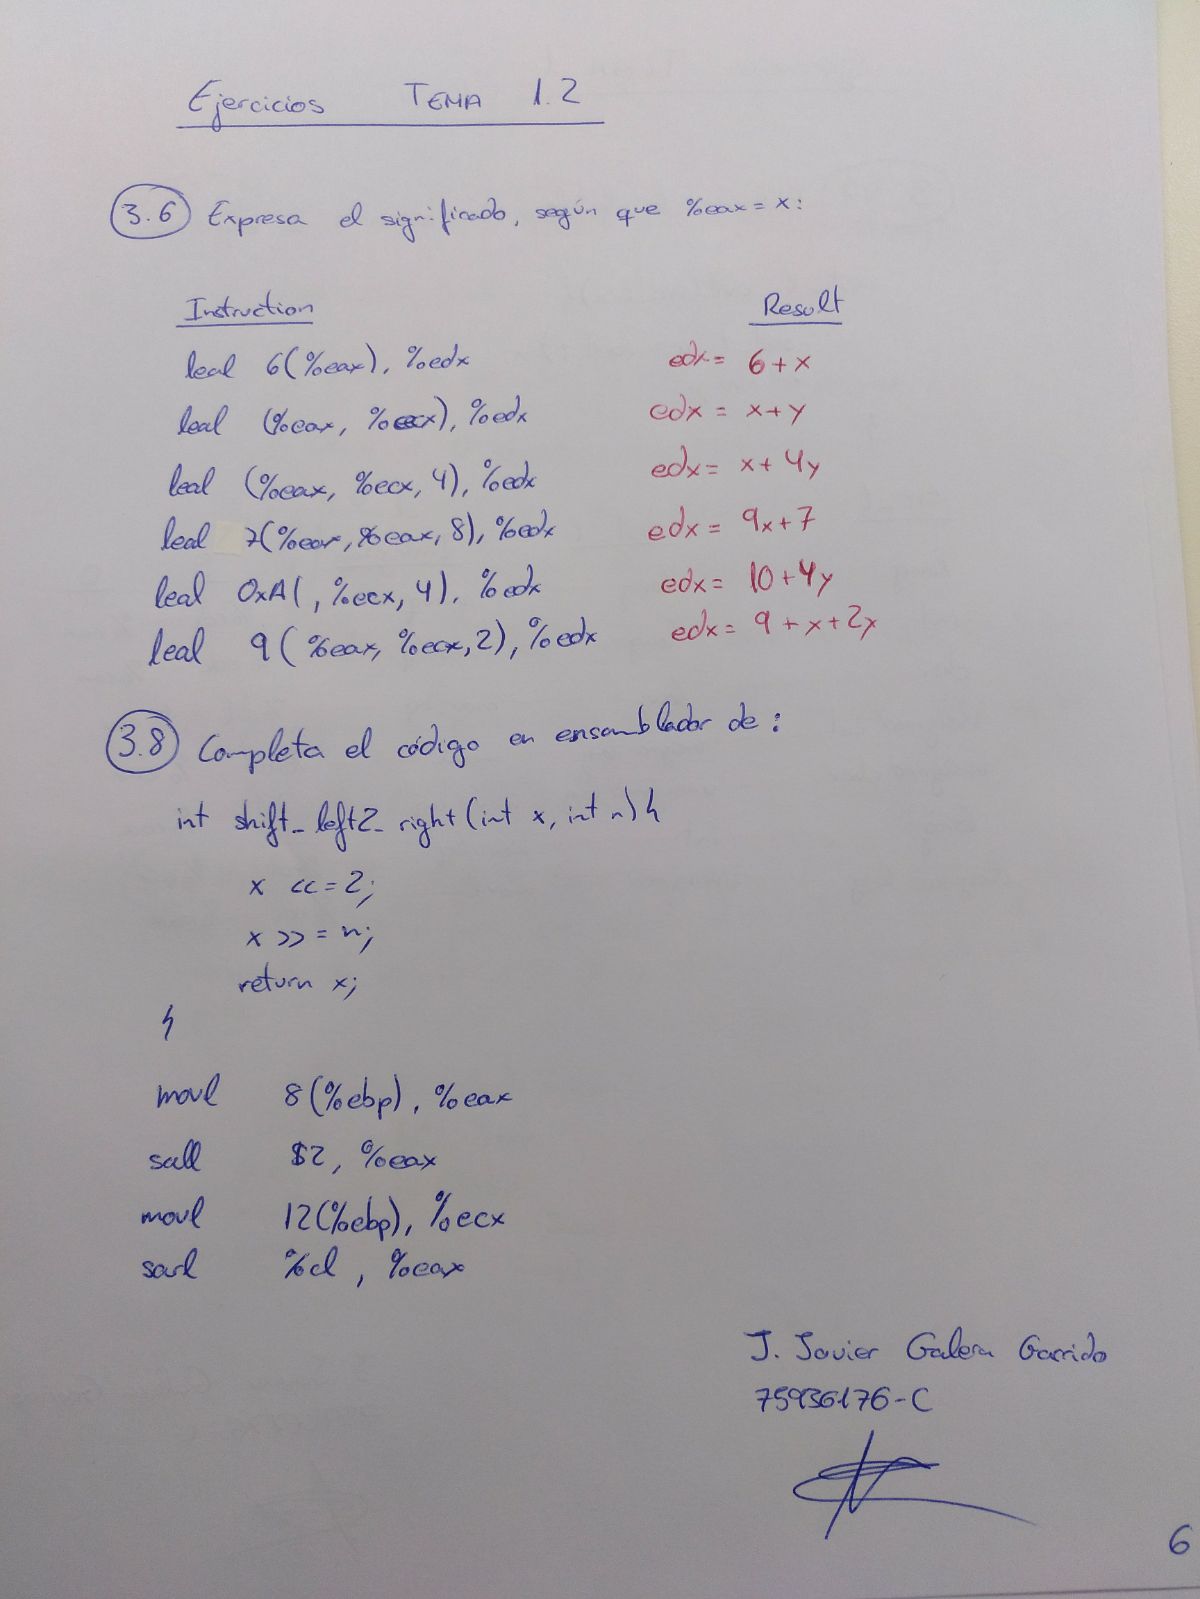 Ejercicios TEMA 1.2
3.6 Expresa el significado, según que %eax = x:
Instruction Result
leal 6(%eax), %edx edx = 6 + x
leal (%eax, %ecx), %edx edx = x + y
leal (%eax, %ecx, 4), %edx edx = x + 4y
leal 7(%eax, %eax, 8), %edx edx = 9x + 7
leal 0xA(, %ecx, 4), %edx edx = 10 + 4y
leal 9(%eax, %ecx, 2), %edx edx = 9 + x + 2y
3.8 Completa el código en ensamblador de:
int shift_left2_right(int x, int n) {
x <<= 2;
x >>= n;
return x;
}
movl 8(%ebp), %eax
sall $2, %eax
movl 12(%ebp), %ecx
sarl %cl, %eax
J. Javier Galera Garrido
75936176-C
6